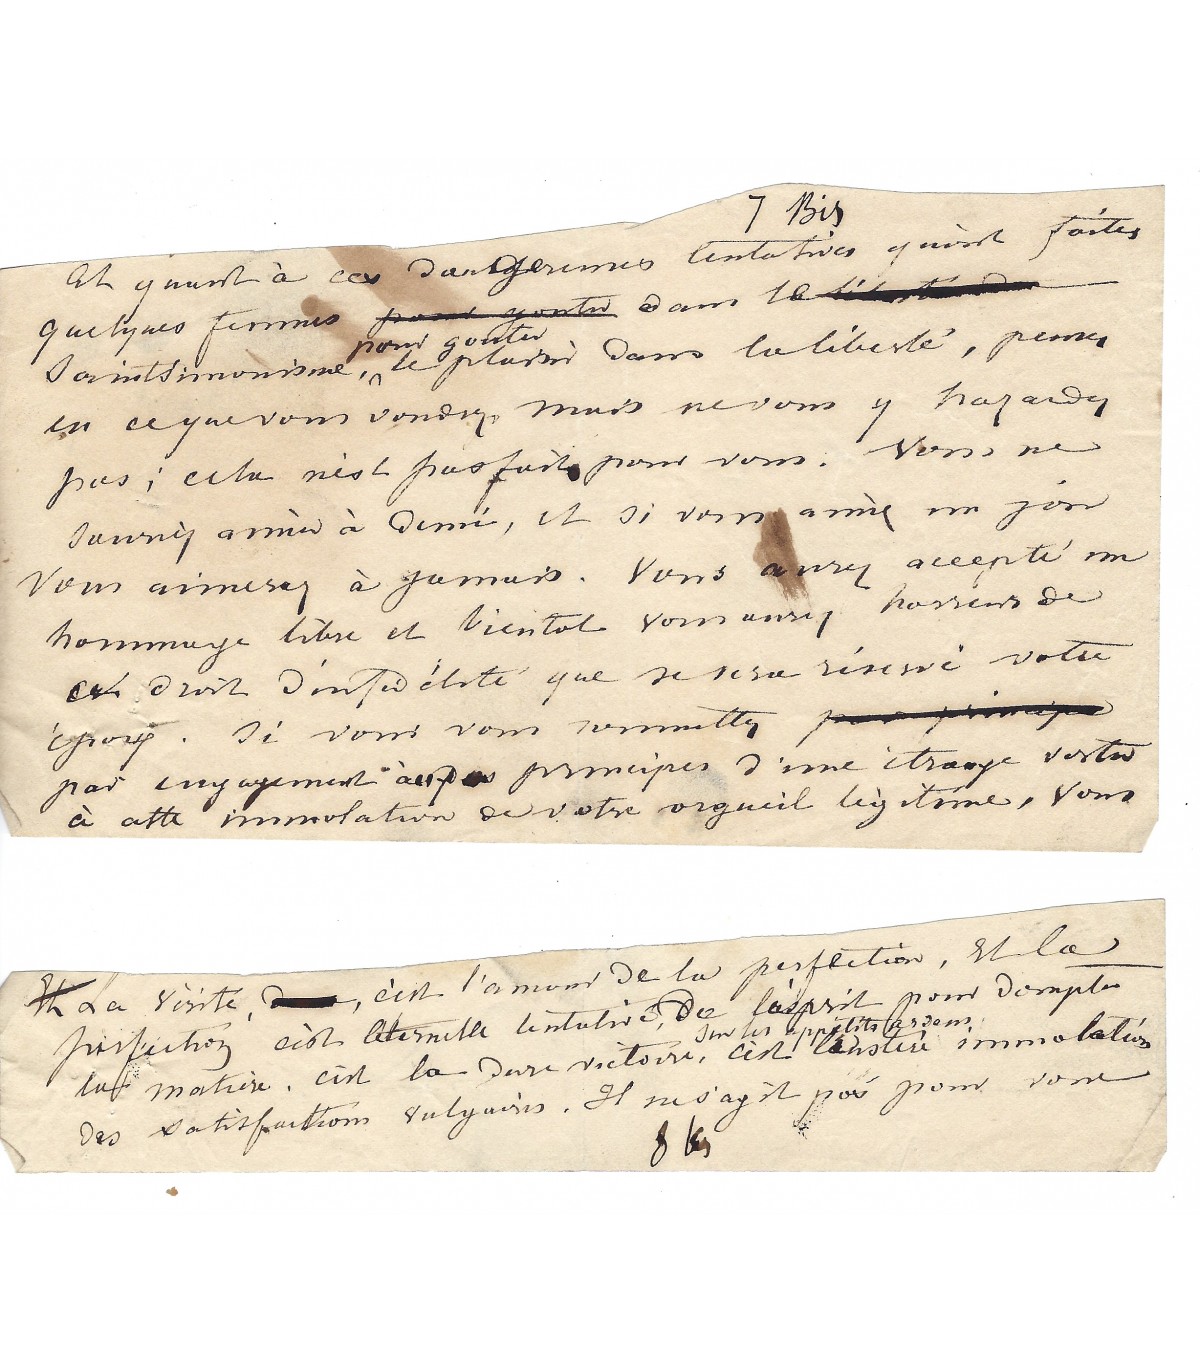 7 Bis
Et quant à ces dangereuses tentatives qu'ont faites
quelques femmes pour gouter dans le
pour gouter
Saintsimonisme, le plaisir dans la liberté, pensez
en ce que vous voudrez, mais ne vous y hazardez
pas; cela n'est pas fait pour vous. Vous ne
sauriez aimer à demi, et si vous aimez un jour
vous aimerez à jamais. Vous aurez accepté un
hommage libre et bientot vous aurez horreur de
ce droit d'infidélité que se sera réservé votre
époux. Si vous vous soumettez par principe
par engagement à principes d'une étrange vertu
à cette immolation de votre orgueil légitime, vous
Et La vérité, c'est l'amour de la perfection, Et la
perfection c'est l'éternelle tentative de l'esprit pour dompter
sur les appétits ardens,
la matière. c'est la dure victoire, c'est l'austère immolation
des satisfactions vulgaires. Il ne s'agit pas pour vous
8 bis